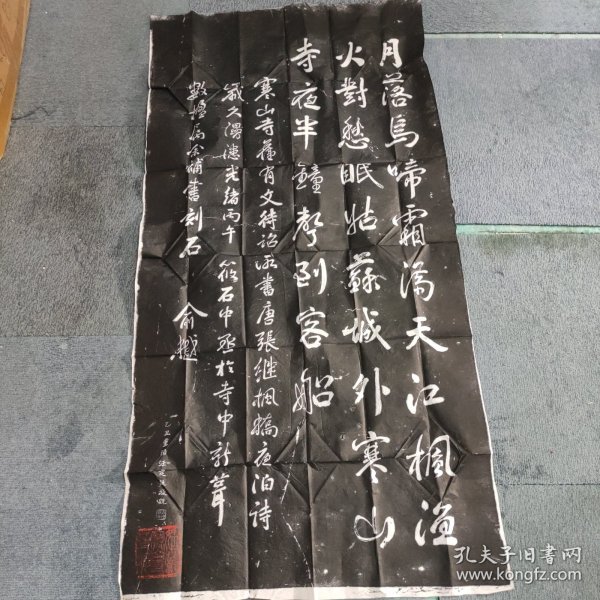 月落烏啼霜滿天江楓漁
火對愁眠姑蘇城外寒山
寺夜半鐘聲到客船
寒山寺舊有文待詔所書唐張繼楓橋夜泊詩
歲久漫漶光緒丙午 筱石中丞於寺中新葺
數楹属余補書刻石
俞樾
孔夫子旧书网
www.kongfz.com